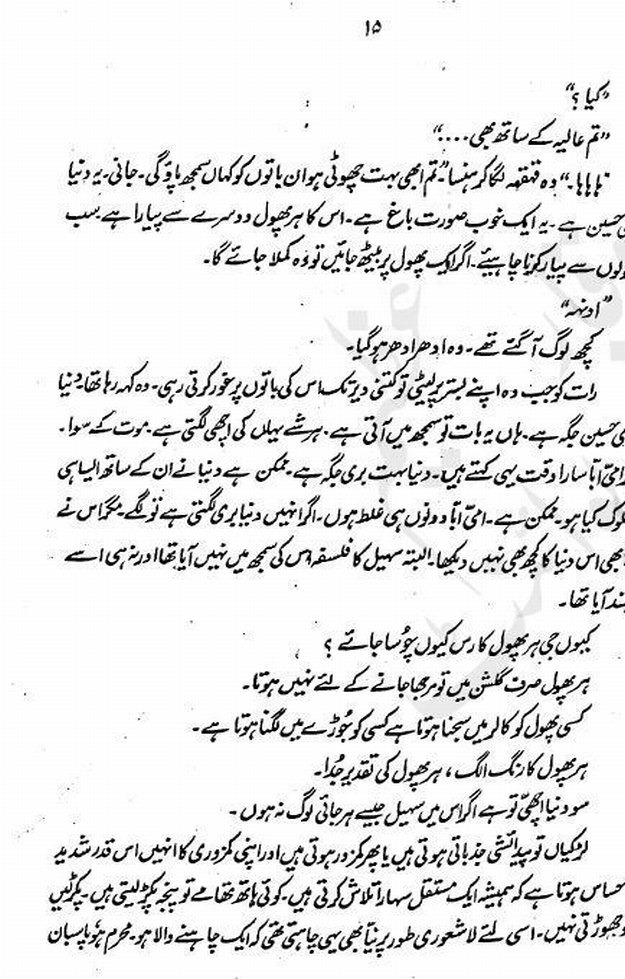 ۱۵
"کیا؟"
"تم عالیہ کے ساتھ بھی ...."
"ہاہاہا۔" وہ قہقہہ لگا کر ہنسا "تم ابھی بہت چھوٹی ہو ان باتوں کو کہاں سمجھ پاؤ گی۔ جانی۔ یہ دنیا
حسین ہے۔ یہ ایک خوب صورت باغ ہے۔ اس کا ہر پھول دوسرے سے پیارا ہے سب
سے پیار کرنا چاہیئے۔ اگر ایک پھول پر بیٹھ جائیں تو وہ کملا جائے گا۔
"اونہہ"
کچھ لوگ آ گئے تھے۔ وہ ادھر ادھر ہو گیا۔
رات کو جب وہ اپنے بستر پر لیٹی تو کتنی دیر تک اس کی باتوں پر غور کرتی رہی۔ وہ کہہ رہا تھا۔ دنیا
حسین جگہ ہے۔ ہاں یہ بات تو سمجھ میں آتی ہے۔ ہر شے یہاں کی اچھی لگتی ہے۔ موت کے سوا۔
امی آبا سارا وقت یہی کہتے ہیں۔ دنیا بہت بری جگہ ہے۔ ممکن ہے دنیا نے ان کے ساتھ ایسا ہی
کیا ہو۔ ممکن ہے۔ امی آبا دونوں ہی غلط ہوں۔ اگر انہیں دنیا بری لگتی ہے تو لگے۔ مگر اس نے
ابھی اس دنیا کا کچھ بھی نہیں دیکھا۔ البتہ سہیل کا فلسفہ اس کی سمجھ میں نہیں آیا تھا اور نہ ہی اسے
آیا تھا۔
کیوں جی ہر پھول کا رس کیوں چُوسا جائے؟
ہر پھول صرف گلشن میں تو مرجھا جانے کے لئے نہیں ہوتا۔
کسی پھول کو کالر میں سجنا ہوتا ہے کسی کو جُوڑے میں لگنا ہوتا ہے۔
ہر پھول کا رنگ الگ، ہر پھول کی تقدیر جُدا۔
سو دنیا اچھی تو ہے اگر اس میں سہیل جیسے ہر جائی لوگ نہ ہوں۔
لڑکیاں تو پیدائشی جذباتی ہوتی ہیں یا پھر کمزور ہوتی ہیں اور اپنی کمزوری کا انہیں اس قدر شدید
ہوتا ہے کہ ہمیشہ ایک مستقل سہارا تلاش کرتی ہیں۔ کوئی ہاتھ تھامے تو پنجہ پکڑ لیتی ہیں۔ پکڑ لیں
چھوڑتی نہیں۔ اسی لئے لاشعوری طور پر نیّا بھی یہی چاہتی تھی کہ ایک چاہنے والا ہو۔ محرم ہو پاسبان